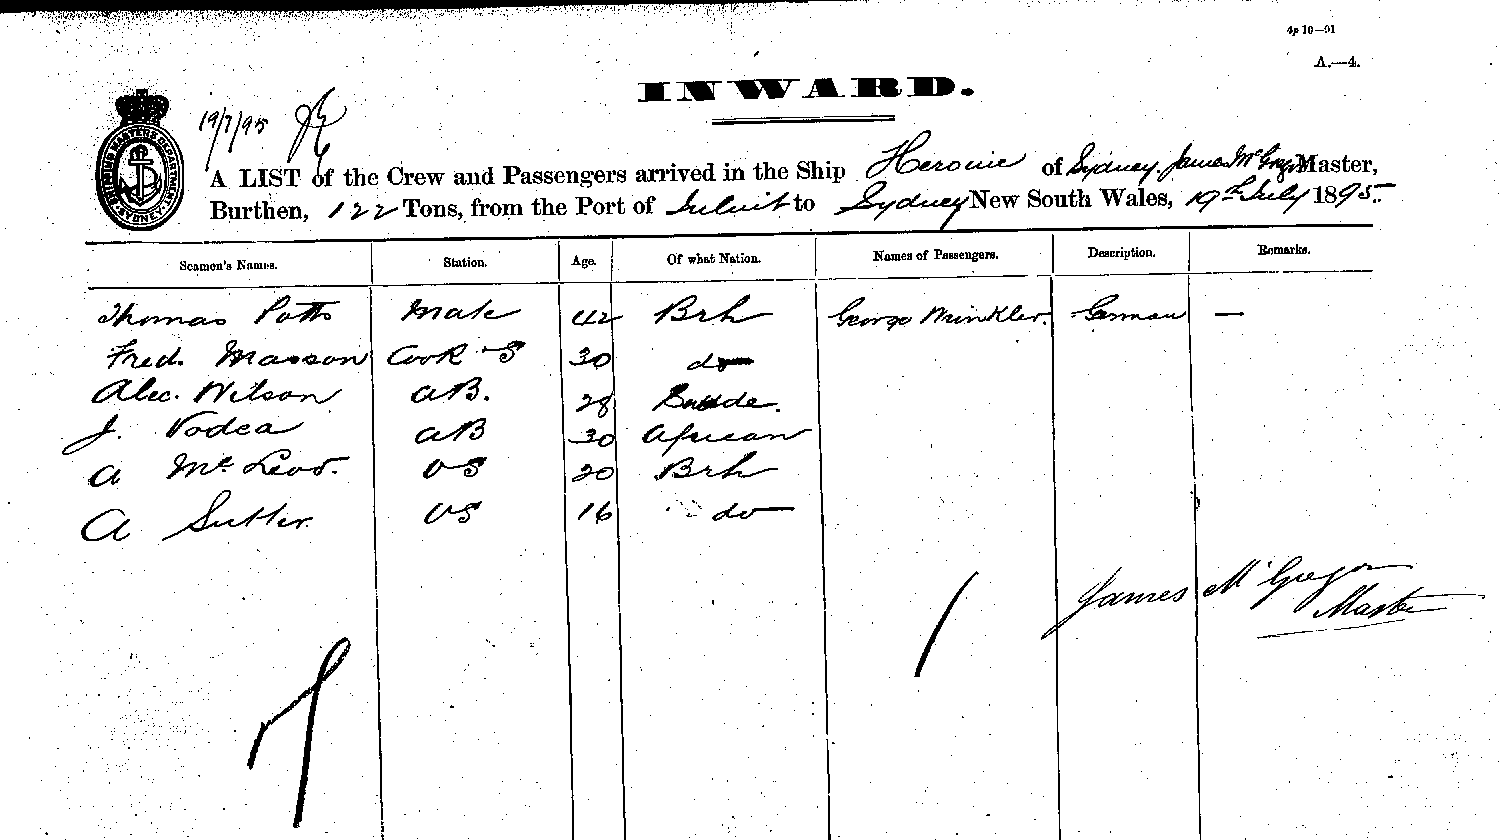 4p 10—91
A.—4.
INWARD.
SHIPPING MASTERS DEPARTMENT
SYDNEY
19/7/95
A LIST of the Crew and Passengers arrived in the Ship Heroine of Sydney. James McGregor Master,
Burthen, 122 Tons, from the Port of Jaluit to Sydney New South Wales, 19th July 1895.
Seamen's Names. Station. Age. Of what Nation. Names of Passengers. Description. Remarks.
Thomas Potts Mate 42 Brh George Winkler. German —
Fred. Masson Cook & S 30 do
Alec. Wilson AB. 28
J. Vodea AB 30 African
A McLeod. OS 20 Brh
A Sutter. OS 16 do
James McGregor
Master